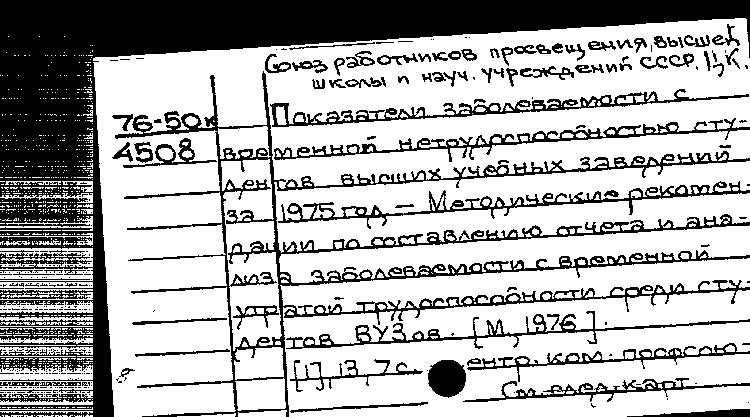 Союз работников просвещения, высшей
школы и науч. учреждений СССР. Ц.К.
76-50к Показатели заболеваемости с
4508 временной нетрудоспособностью сту-
дентов высших учебных заведений
за 1975 год. — Методические рекомен-
дации по составлению отчета и ана-
лиза заболеваемости с временной
утратой трудоспособности среди сту-
дентов ВУЗов. [М., 1976].
[1], 13, 7 с. ентр. ком. профсою-
См. след. карт.